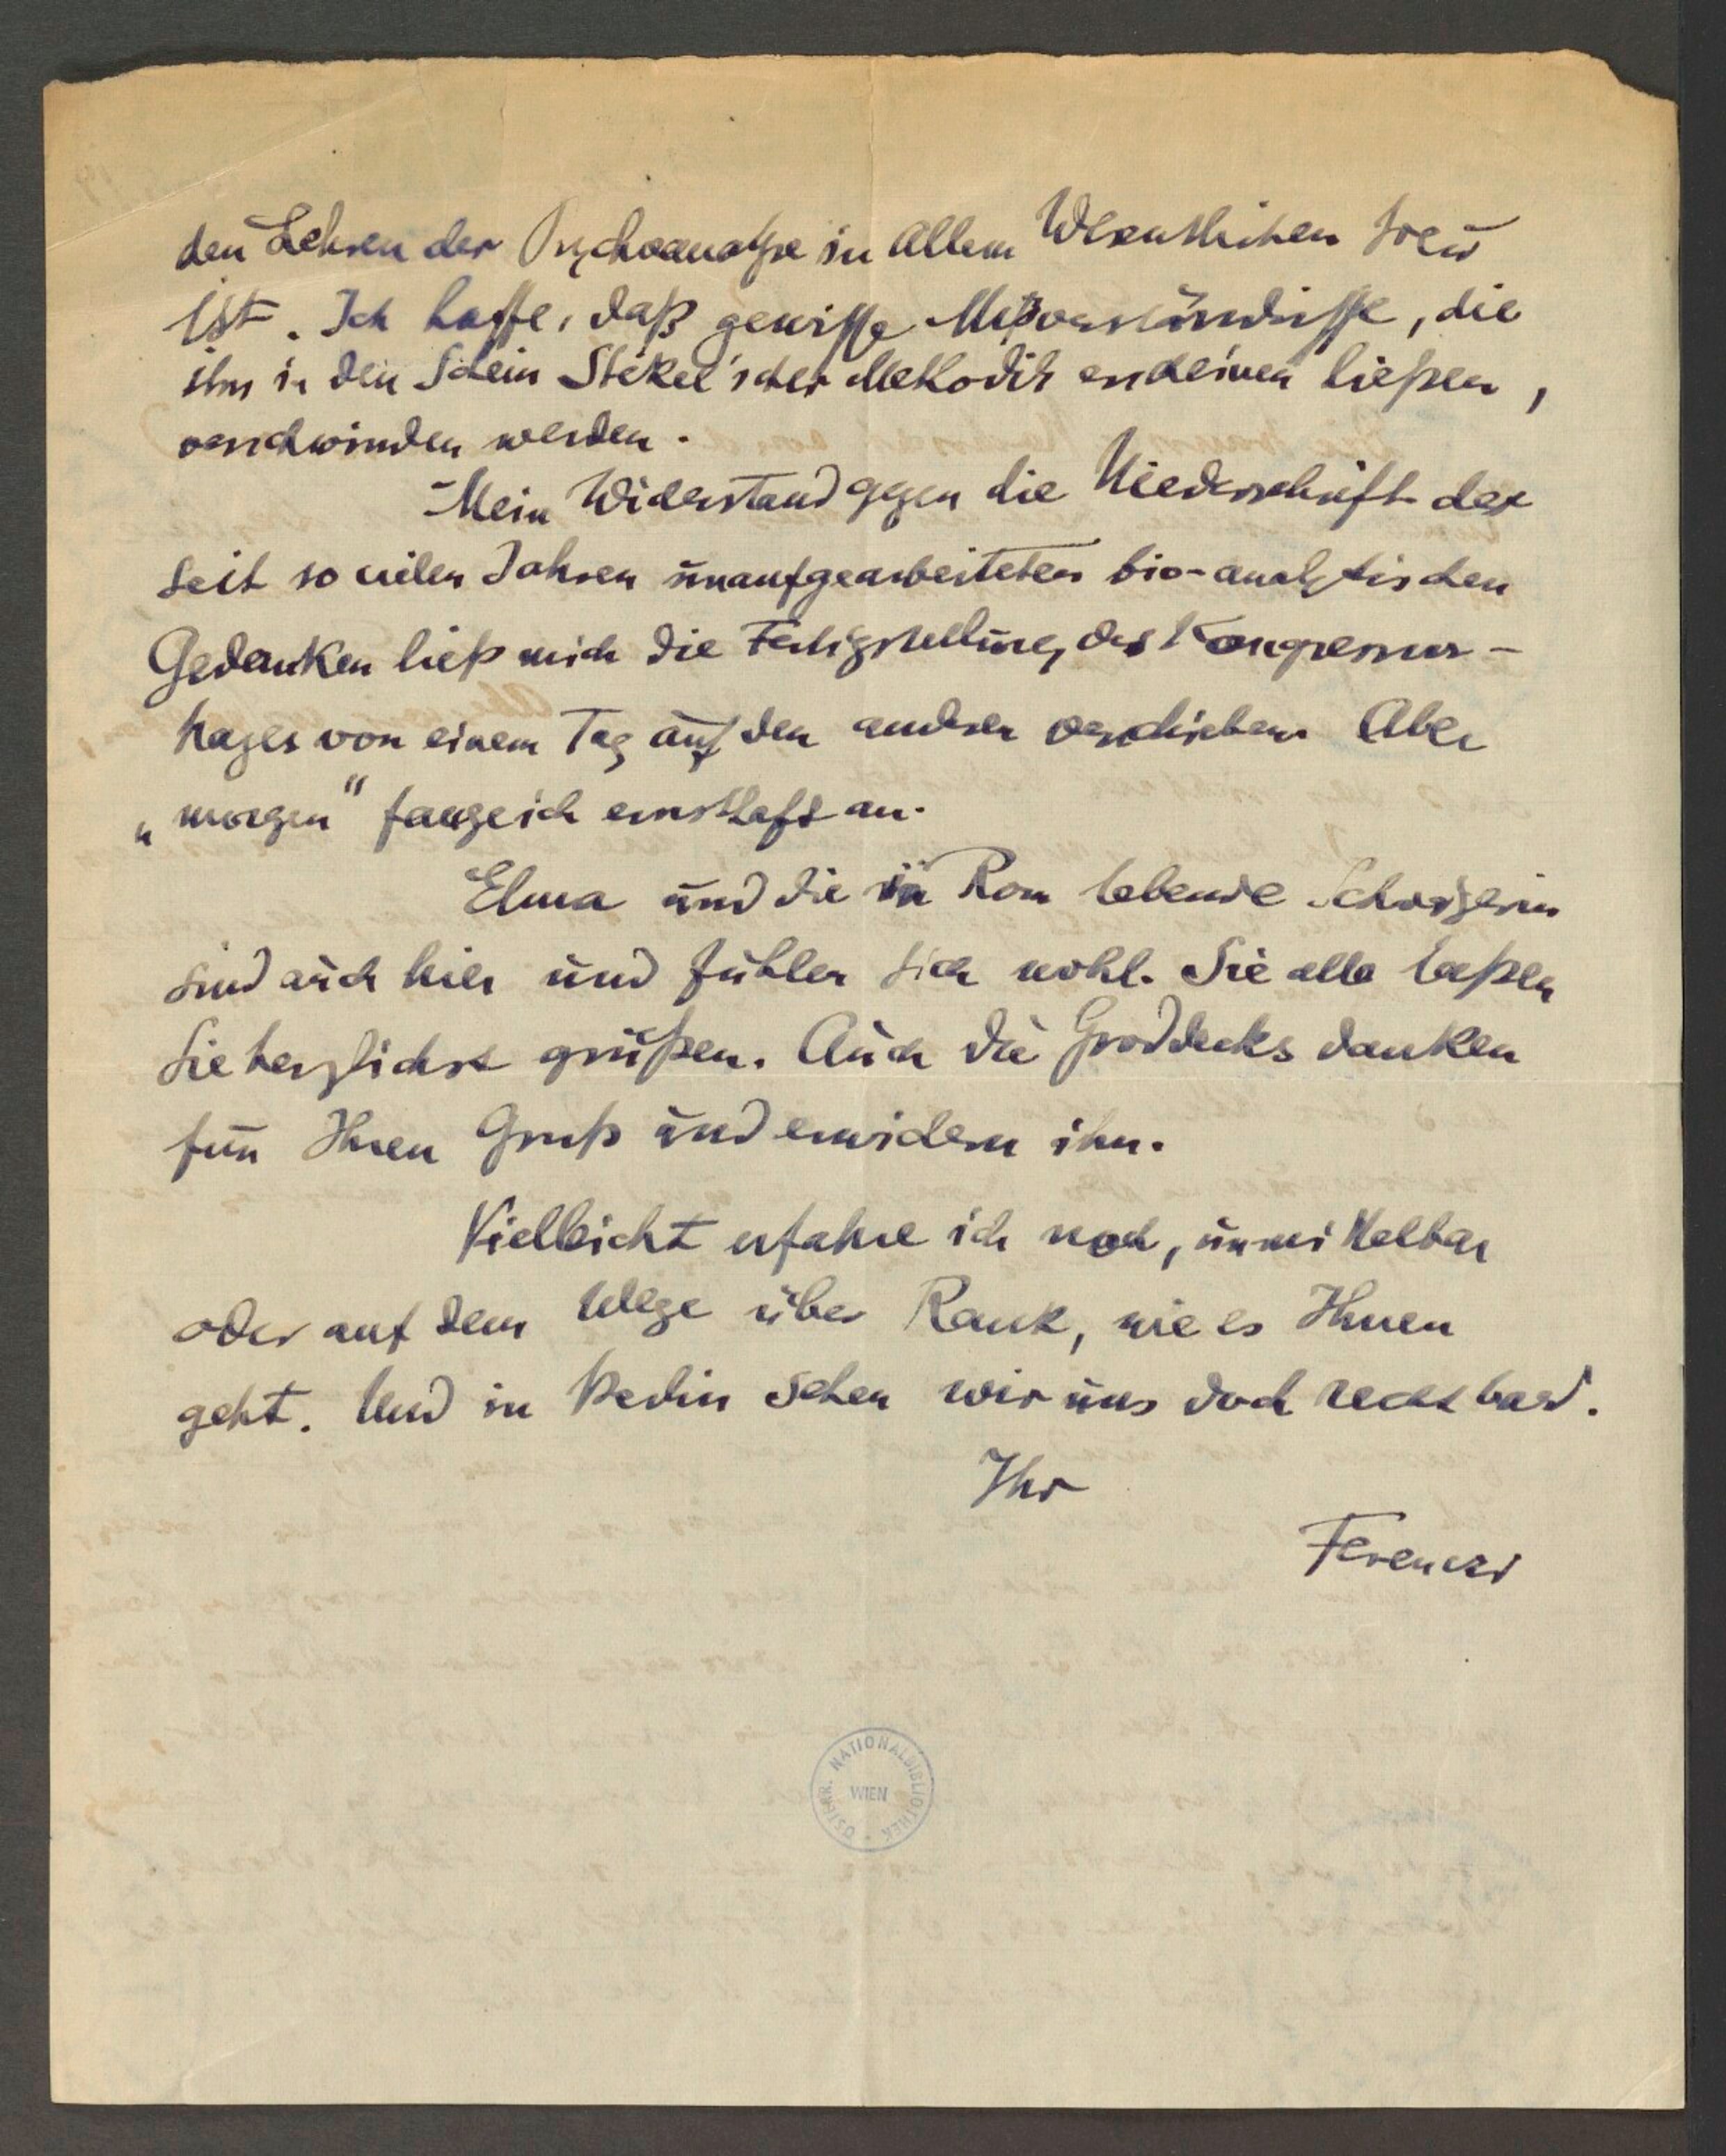 den Lehren der Psychoanalyse in Allem Wesentlichen treu
ist. Ich hoffe, daß gewisse Mißverständnisse, die
ihn in den Schein Stekel'scher Methodik erscheinen ließen,
verschwinden werden.
Mein Widerstand gegen die Niederschrift der
seit so vielen Jahren unaufgearbeiteten bio-analytischen
Gedanken ließ mich die Fertigstellung des Kongressvor-
trages von einem Tag auf den andern verschieben. Aber
„morgen“ fange ich ernsthaft an.
Elma und die in Rom lebende Schwägerin
sind auch hier und fühlen sich wohl. Sie alle laßen
Sie herzlichst grüßen. Auch die Groddecks danken
für Ihren Gruß und erwidern ihn.
Vielleicht erfahre ich noch, unmittelbar
oder auf dem Wege über Rank, wie es Ihnen
geht. Und in Berlin sehen wir uns doch recht bald.
Ihr
Ferenczi
ÖSTERR. NATIONALBIBLIOTHEK
WIEN